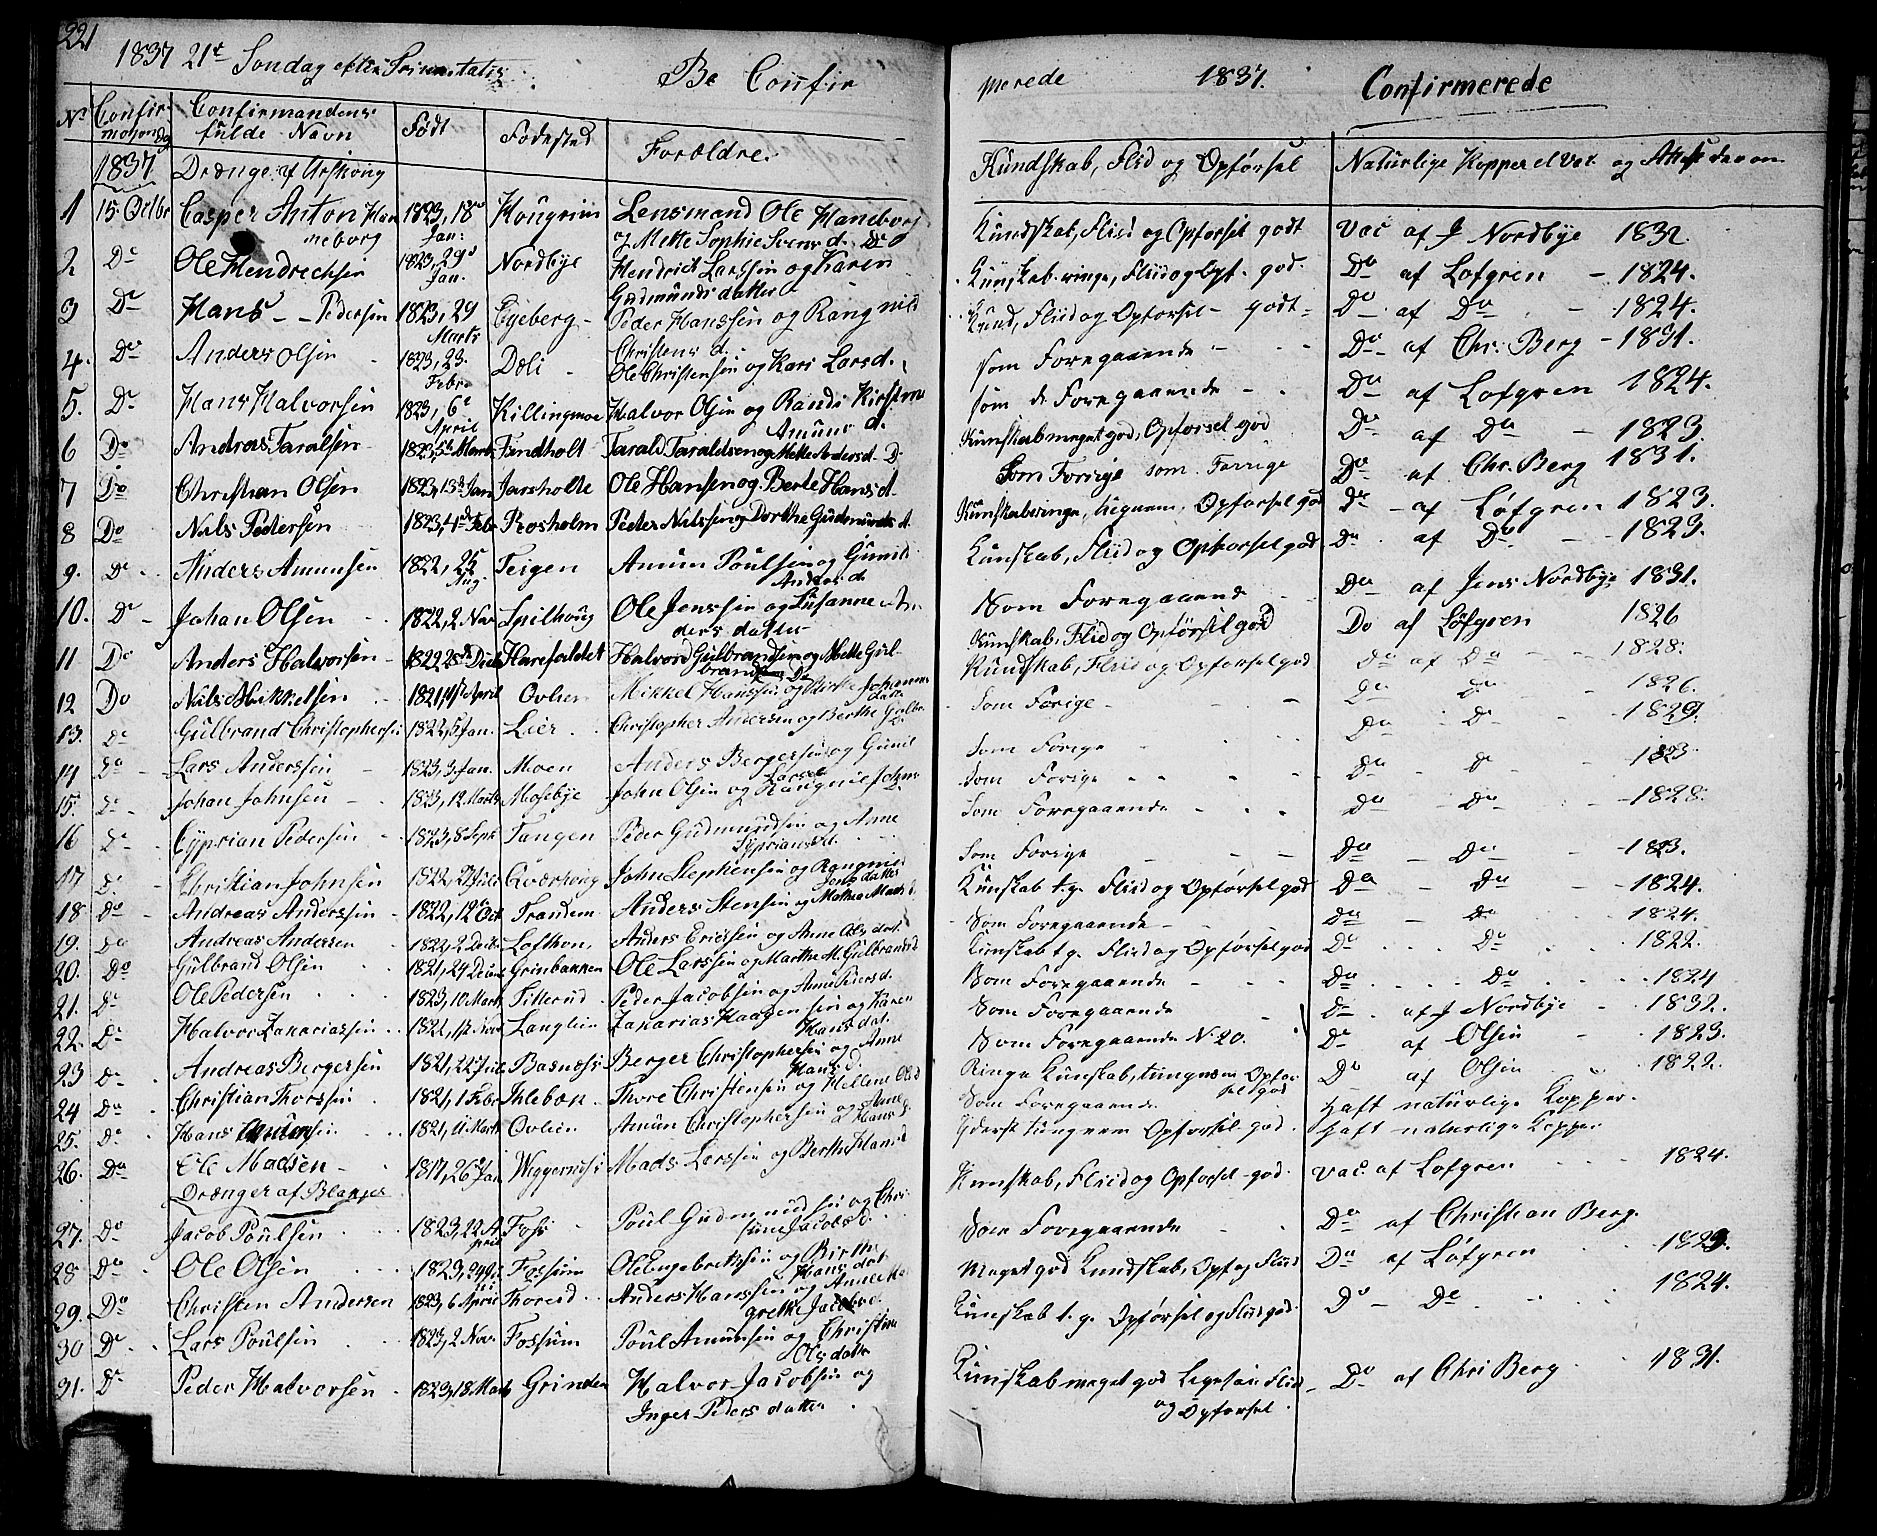 221
1837 21de Søndag efter Trinitatis
Be Confir
merede 1837. Confirmerede
No Confirmasjons Dag Confirmandens fulde Navn Født Fødested Forældre. Kundskab, Fliid og Opførsel Naturlige Kopper el Vac. og Attest derom
1837 Drænge af Urskoug
1 15 Octbr Casper Anton Hanneborg 1823, 18de Jan: Kougrim Lensmand Ole Haneborg og Mette Sophie Svens d. Kundskab, Fliid og Opførsel godt Vac af J Nordbye 1832.
2 Do Ole Hendrechsen 1823, 29de Jan. Nordbye Hendrich Larssen og Karen Gudmunds datter Kunskab ringe, Fliid og Opf. god. Do af Løfgren 1824.
3 Do Hans Pedersen 1823, 29 Marts Egeberg Peder Hanssen og Rangnild Christens d. Kund, Fliid og Opførsel godt Do af Do 1824.
4. Do Anders Olsen 1823, 23. Febr. Dæli Ole Christensen og Kari Larsd. som Foregaaende Do af Chr. Berg 1831.
5. Do Hans Halvorsen 1823, 6te April Killingmoe Halvor Olsen og Randi Kirstine Amuns d. som de Foregaaende Do af Lofgren 1824.
6 Do Andreas Taralsen 1823, 5te Marts Findholt Tarald Taraldsen og Mette Andersd. Kunskab meget god, Opførsel god Do af Do 1823.
7 Do Christian Olsen 1823, 13de Jan Jarsholte Ole Hansen og Berte Hans d. Som Forrige som Forrige Do af Chr. Berg 1831.
8 Do Nils Pedersen 1823, 4de Febr Rosholm Peder Nilssen og Dorthe Gudmunds d. Kunskab ringe, Opførsel god Do af Løfgren 1823.
9. Do Anders Amunsen 1822, 25 Aug. Teigen Amun Poulsen og Gunild Anders d. Kunskab, Fliid og Opførsel god Do af Do 1823.
10. Do Johan Olsen 1822, 2 Nov Spilhoug Ole Jenssen og Susanne Anders datter Som Foregaaende Do af Jens Nordbye 1831.
11 Do Anders Halvorsen 1822, 28de Harefaldet Halvord Gulbrandsen og Mette Gulbrands D. Kunskab, Fliid og Opførsel god Do af Løfgren 1826
12 Do Nils Mikkelsen 1821, April Ovlien Mikkel Hanssen og Johannes datt. Kundskab, Fliid og Opførsel god Do af Do 1828.
13. Do Gulbrand Christophersen 1822, 5 Jan. Lier Christopher Andersen og Berthe Gulbr. Som Forige Do Do 1826.
14 Do Lars Anderssen 1823, 3 Jan. Moen Anders Bergersen og Gunil Larsd. Som Forige Do Do 1829
15. Do Johan Johnsen 1823, 12 Marts Mosebye John Olsen og Rangnil Som Forige Do Do 1823.
16 Do Cyprian Pedersen 1823, 8 Sept Tangen Peder Gudmundsen og Anne Syprians d. Som Foregaaende Do Do 1828.
17 Do Christian Johnsen 1822, 27 Juli Qværhoug John Stephensen og Rangnil Jens datter Som Forige Do Do 1823.
18 Do Andreas Anderssen 1822, 12te Oct Trandem Anders Stensen og Mathea Mads d. Kunskab t.g. Fliid og Opførsel god Do Do 1824.
19. Do Andreas Andersen 1822, 2 Decbr Lofthon Anders Ericssen og Anne Ols dat. Som Foregaaende Do Do 1824.
20. Do Gulbrand Olsen 1821, 29 Grinbakken Ole Larssen og Marthe M. Gulbrandsd Kunskab t.g. Fliid og Opførsel god Do Do 1822.
21. Do Ole Pedersen 1823, 10 Marts Tillerud Peder Jacobsen og Anne Peders d. Som Foregaaende Do Do 1824
22. Do Halvor Zakariassen 1822, 12 Nov Langlein Zakarias Haagensen og Karen Hans dat. Som Foregaaende Do af J Nordbye 1832.
23 Do Andreas Bergersen 1821, 22 Juli Basness Berger Christophersen og Anne Hans d. Som Foregaaende No 20. Do af Olsen 1823.
24 Do Christian Thorssen 1821, 1 Febr Ihlebæk Thore Christensen og Hellene Olsd Ringe Kunskab, tungnem Opførsel god Do af Olsen 1822.
25. Do Hans 1821, 11 Marts Ovlien Amun Christophersen og Anne Hans d. Som Foregaaende Haft naturlige Kopper.
26. Do Ole Madsen 1817, 26 Jan Mads Larssen og Berthe Hansd Yderst tungnem Opførsel god. Haft naturlige Kopper
Drænger af Blakjer
Kunskab, Fliid og Opførsel god. Vac. af Lofgren 1824.
27. Do Jacob Poulsen 1823, 22 April Foss Poul Gudmundsen og Christine Jacobs d. Som Foregaaende Do af Christian Berg.
28 Do Ole Olsen 1823, 24 Fossum Ole Engebretssen og Birthe Hans dat Meget god Kundskab, Opf og Fliid Do af Løfgren 1823.
29. Do Christen Andersen 1823, 6 April Thorerd Anders Hanssen og Anne Margrethe Jacobs d. Kunskab t.g. Opførsel og Fliid god. Do Do 1824.
30 Do Lars Poulsen 1823, 2 Nov. Fossum Poul Amunsen og Christine Ols datter
31. Do Peder Halvorsen 1823, 18 Marts Grinder Halvor Jacobsen og Inger Peders datter Kunskab meget god Ligesaa Fliid og Opførsel. Do af Chri Berg 1831.